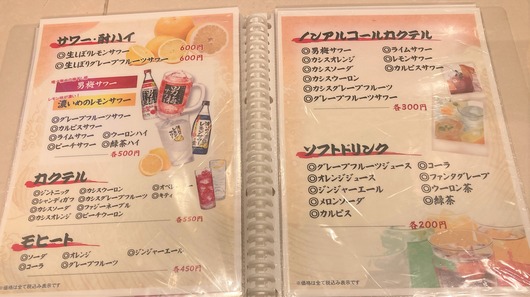 サワー・酎ハイ
◎生しぼりレモンサワー 600円
◎生しぼりグレープフルーツサワー 600円
男梅サワー
濃いめのレモンサワー
◎グレープフルーツサワー
◎カルピスサワー
◎ライムサワー ◎ウーロンハイ
◎ピーチサワー ◎緑茶ハイ
各500円
カクテル
◎ジントニック ◎カシスウーロン
◎シャンディガフ ◎カシスグレープフルーツ
◎カシスソーダ ◎ファジーネーブル
◎カシスオレンジ ◎ピーチウーロン
各550円
モヒート
◎ソーダ ◎オレンジ ◎ジンジャーエール
◎コーラ ◎グレープフルーツ
各450円
※価格は全て税込み表示です
ノンアルコールカクテル
◎男梅サワー ◎ライムサワー
◎カシスオレンジ ◎レモンサワー
◎カシスソーダ ◎カルピスサワー
◎カシスウーロン
◎カシスグレープフルーツ
◎グレープフルーツサワー
各300円
ソフトドリンク
◎グレープフルーツジュース ◎コーラ
◎オレンジジュース ◎ファンタグレープ
◎ジンジャーエール ◎ウーロン茶
◎メロンソーダ ◎緑茶
◎カルピス
各200円
※価格は全て税込み表示です